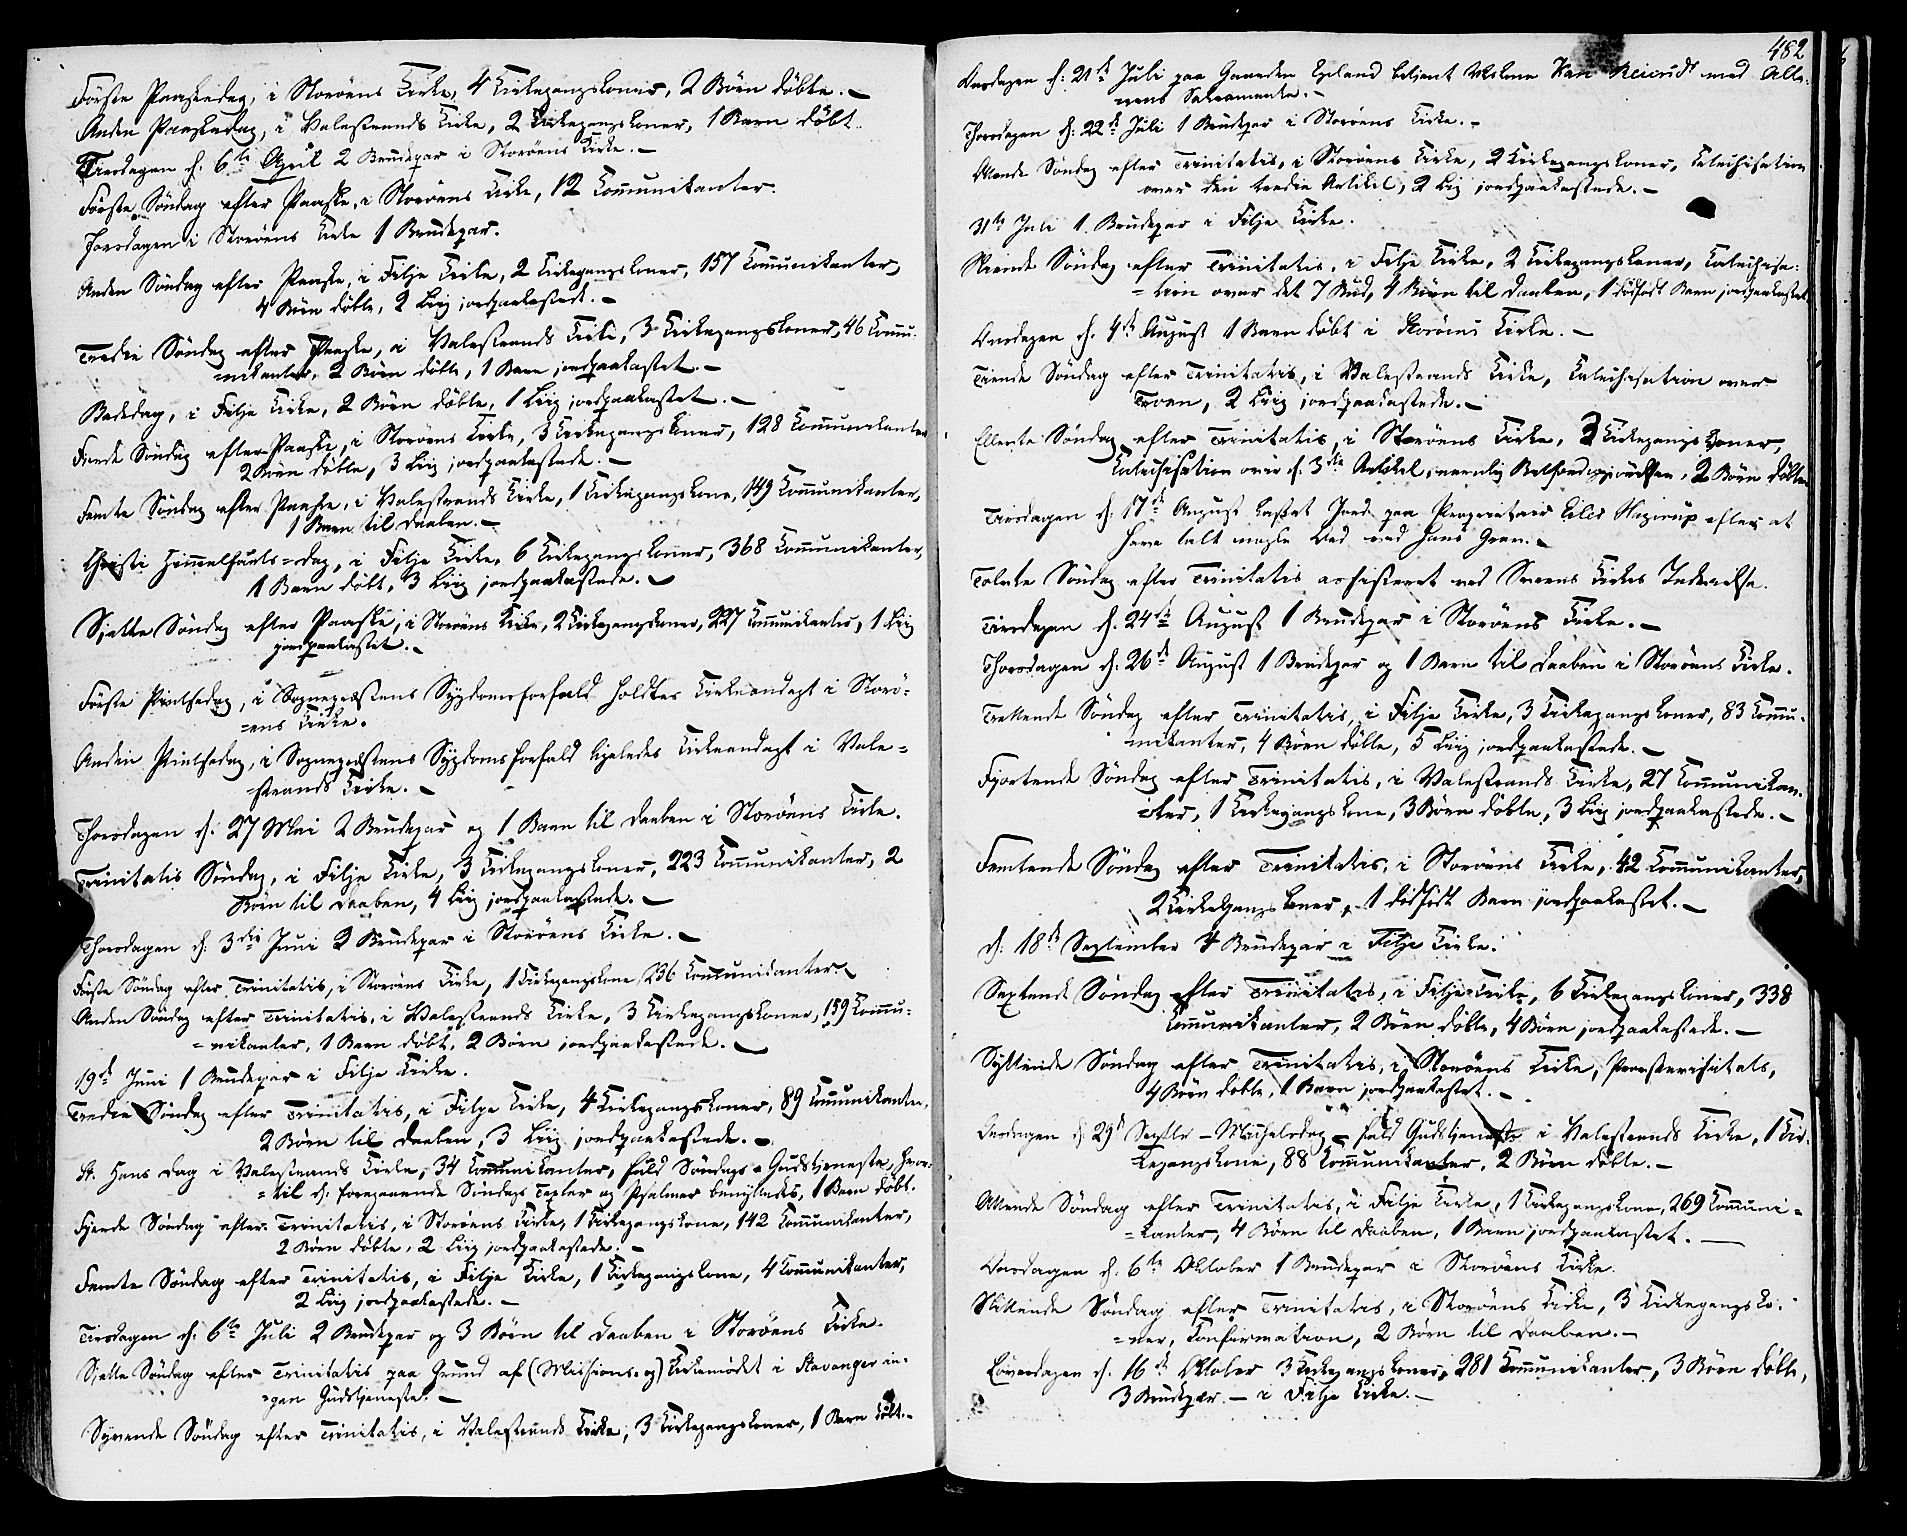 Første Paaskedag, i Storöens Kirke, 4 Kirkegangskoner, 2 Börn döbte. –
Anden Paaskedag, i Valestrands Kirke, 2 Kirkegangskoner, 1 Barn döbt.
Tirsdagen d. 6te April 2 Brudepar i Storöens Kirke. –
Første Söndag efter Paaske, i Storöens Kirke, 12 Communikanter.
Torsdagen i Storöens Kirke 1 Brudepar.
Anden Söndag efter Paaske, i Fitje Kirke, 2 Kirkegangskoner, 157 Communikanter,
4 Börn döbte, 2 Liig jordpaakastede. –
Tredie Söndag efter Paaske, i Valestrands Kirke, 3 Kirkegangskoner, 46 Commu-
=nikanter, 2 Börn döbte, 1 Barn jordpaakastet. –
Bededag, i Fitje Kirke, 2 Börn döbte, 1 Liig jordpaakastet. –
Fierde Söndag efter Paaske, i Storöens Kirke, 3 Kirkegangskoner, 128 Communikanter
2 Börn döbte, 3 Liig jordpaakastede. –
Femte Söndag efter Paaske, i Valestrands Kirke, 1 Kirkegangskone, 149 Communikanter,
1 Barn til Daaben. –
Christi Himmelfarts=dag, i Fitje Kirke, 6 Kirkegangskoner, 368 Communikanter,
1 Barn döbt, 3 Liig jordpaakastede. –
Sjette Söndag efter Paaske, i Storöens Kirke, 2 Kirkegangskoner, 227 Communikanter, 1 Liig
jordpaakastet. –
Første Pintsedag, i Sognepræstens Sygdomsforfald holdtes Kirkeandagt i Storö-
=ens Kirke.
Anden Pintsedag, i Sognepræstens Sygdomsforfald ligeledes Kirkeandagt i Vale=
strands Kirke. –
Thorsdagen d. 27 Mai 2 Brudepar og 1 Barn til Daaben i Storöens Kirke.
Trinitatis Söndag, i Fitje Kirke, 3 Kirkegangskoner, 223 Communikanter, 2
Börn til Daaben, 4 Liig jordpaakastede. –
Thorsdagen d: 3die Juni 2 Brudepar i Storöens Kirke. –
Første Söndag efter Trinitatis, i Storöens Kirke, 1 Kirkegangskone 236 Communikanter. –
Anden Söndag efter Trinitatis, i Valestrands Kirke, 3 Kirkegangskoner, 159 Commu-
=nikanter, 1 Barn döbt, 2 Börn jordpaakastede. –
19de Juni 1 Brudepar i Fitje Kirke.
Tredie Söndag efter Trinitatis, i Fitje Kirke, 4 Kirkegangskoner, 89 Communikanter,
2 Börn til Daaben, 3 Liig jordpaakastede. –
St. Hans Dag i Valestrands Kirke, 34 Communikanter, fuld Söndags-Gudstjeneste, hvor-
=til d: foregaaende Söndags Texter og Psalmer benyttedes, 1 Barn döbt.
Fjerde Söndag efter Trinitatis, i Storöens Kirke, 1 Kirkegangskone, 142 Communikanter,
2 Börn döbte, 2 Liig jordpaakastede. –
Femte Söndag efter Trinitatis, i Fitje Kirke, 1 Kirkegangskone, 4 Communikanter,
2 Liig jordpaakastede. –
Tirsdagen d: 6te Juli 2 Brudepar og 3 Börn til Daaben i Storöens Kirke.
Sjette Söndag efter Trinitatis paa Grund af (Missions- og) Kirkemödet i Stavanger in-
=gen Gudstjeneste. –
Syvende Söndag efter Trinitatis, i Valestrands Kirke, 3 Kirkegangskoner, 1 Barn döbt. –
482
Onsdagen d: 21de Juli paa Gaarden betjent med Alte-
rens Sakramente. –
Thorsdagen d: 22de Juli 1 Brudepar i Storöens Kirke. –
Ottende Söndag efter Trinitatis, i Storöens Kirke, 2 Kirkegangskoner, Katechisation
over den tredie Artikel, 2 Liig jordpaakastede. –
31te Juli 1 Brudepar i Fitje Kirke.
Niende Söndag efter Trinitatis, i Fitje Kirke, 2 Kirkegangskoner, Katechisa-
=tion over det 7 Bud, 4 Börn til Daaben, 1 dödfödt Barn jordpaakastet
Onsdagen d. 4de August 1 Barn döbt i Storöens Kirke. –
Tiende Söndag efter Trinitatis, i Valestrands Kirke, Katechisation over
Troen, 2 Liig jordpaakastede. –
Ellevte Söndag efter Trinitatis, i Storöens Kirke, 3 Kirkegangskoner,
Katechisation over d. 3die Artikel, nemlig Retfærdiggjörelsen, 2 Börn döbte
Tirsdagen d: 17de August kastet Jord paa Proprietair Eiler Hagerup efter at
have talt nogle Ord ved hans Grav. –
Tolvte Söndag efter Trinitatis assisteret ved Kirkes Indvielse.
Tirsdagen d. 24de August 1 Brudepar i Storöens Kirke. –
Thorsdagen d: 26de August 1 Brudepar og 1 Barn til Daaben i Storöens Kirke.
Trettende Söndag efter Trinitatis, i Fitje Kirke, 3 Kirkegangskoner, 83 Commu-
nikanter, 4 Börn döbte, 5 Liig jordpaakastede. –
Fjortende Söndag efter Trinitatis, i Valestrands Kirke, 27 Communikan-
=ter, 1 Kirkegangskone, 3 Börn döbte, 3 Liig jordpaakastede. –
Femtende Söndag efter Trinitatis, i Storöens Kirke, 42 Communikanter,
2 Kirkegangskoner, 1 dödfödt Barn jordpaakastet. –
d: 18de September 4 Brudepar i Fitje Kirke.
Sextende Söndag efter Trinitatis, i Fitje Kirke, 6 Kirkegangskoner, 338
Communikanter, 2 Börn döbte, 4 Börn jordpaakastede. –
Syttende Söndag efter Trinitatis, i Storöens Kirke, Provstevisitats,
4 Börn döbte, 1 Barn jordpaakastet. –
Onsdagen d: 29de Septbr – Michelsdag – fuld Gudstjeneste i Valestrands Kirke, 1 Kir-
kegangskone, 88 Communikanter, 2 Börn döbte. –
Attende Söndag efter Trinitatis, i Fitje Kirke, 1 Kirkegangskone, 269 Communi=
=kanter, 4 Börn til Daaben, 1 Barn jordpaakastet. –
Onsdagen d: 6te Oktober 1 Brudepar i Storöens Kirke.
Nittende Söndag efter Trinitatis, i Storöens Kirke, 3 Kirkegangsko-
=ner, Confirmation, 2 Börn til Daaben. –
Löverdagen d. 16de Oktober 3 Kirkegangskoner, 281 Communikanter, 3 Börn döbte,
3 Brudepar. – i Fitje Kirke. –